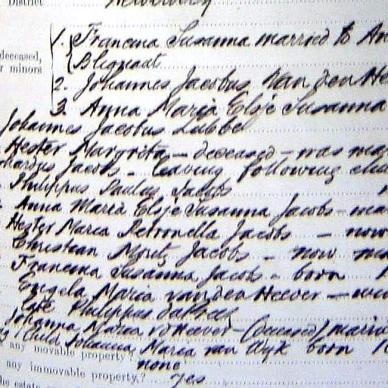 District
1. Francina Susanna married to An
deceased,
Blignaut
or minors
2. Johannes Jacobus Van den He
3. Anna Maria Elsje Susanna
Johannes Jacobus Lubbe
Hester Margrita — deceased — was mar
Jacobs — leaving following chil
Philippus Paulus Jacobs
Anna Maria Elsje Susanna Jacobs — ma
Hester Maria Petronella Jacobs — now
Christian Jacobs — now ma
Francina Susanna Jacobs — born
Engela Maria van den Heever — wi
late Philippus
Johanna Maria v d Heever — (deceased) married
Child Johanna Maria van Wyk born
any movable property
none
any immovable property?
yes
the estate